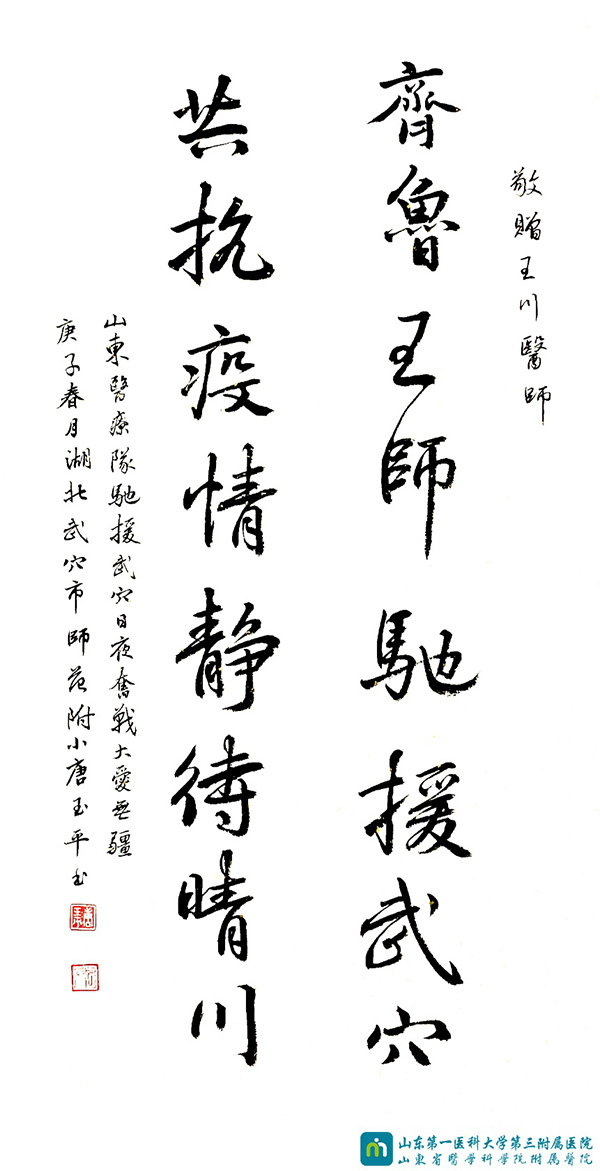 敬贈王川醫師
齊魯王師馳援武穴
共抗疫情靜待晴川
山東醫療隊馳援武穴日夜奮戰大愛無疆
庚子春月湖北武穴市師范附小唐玉平书
山东第一医科大学第三附属医院
山東省醫學科學院附屬醫院